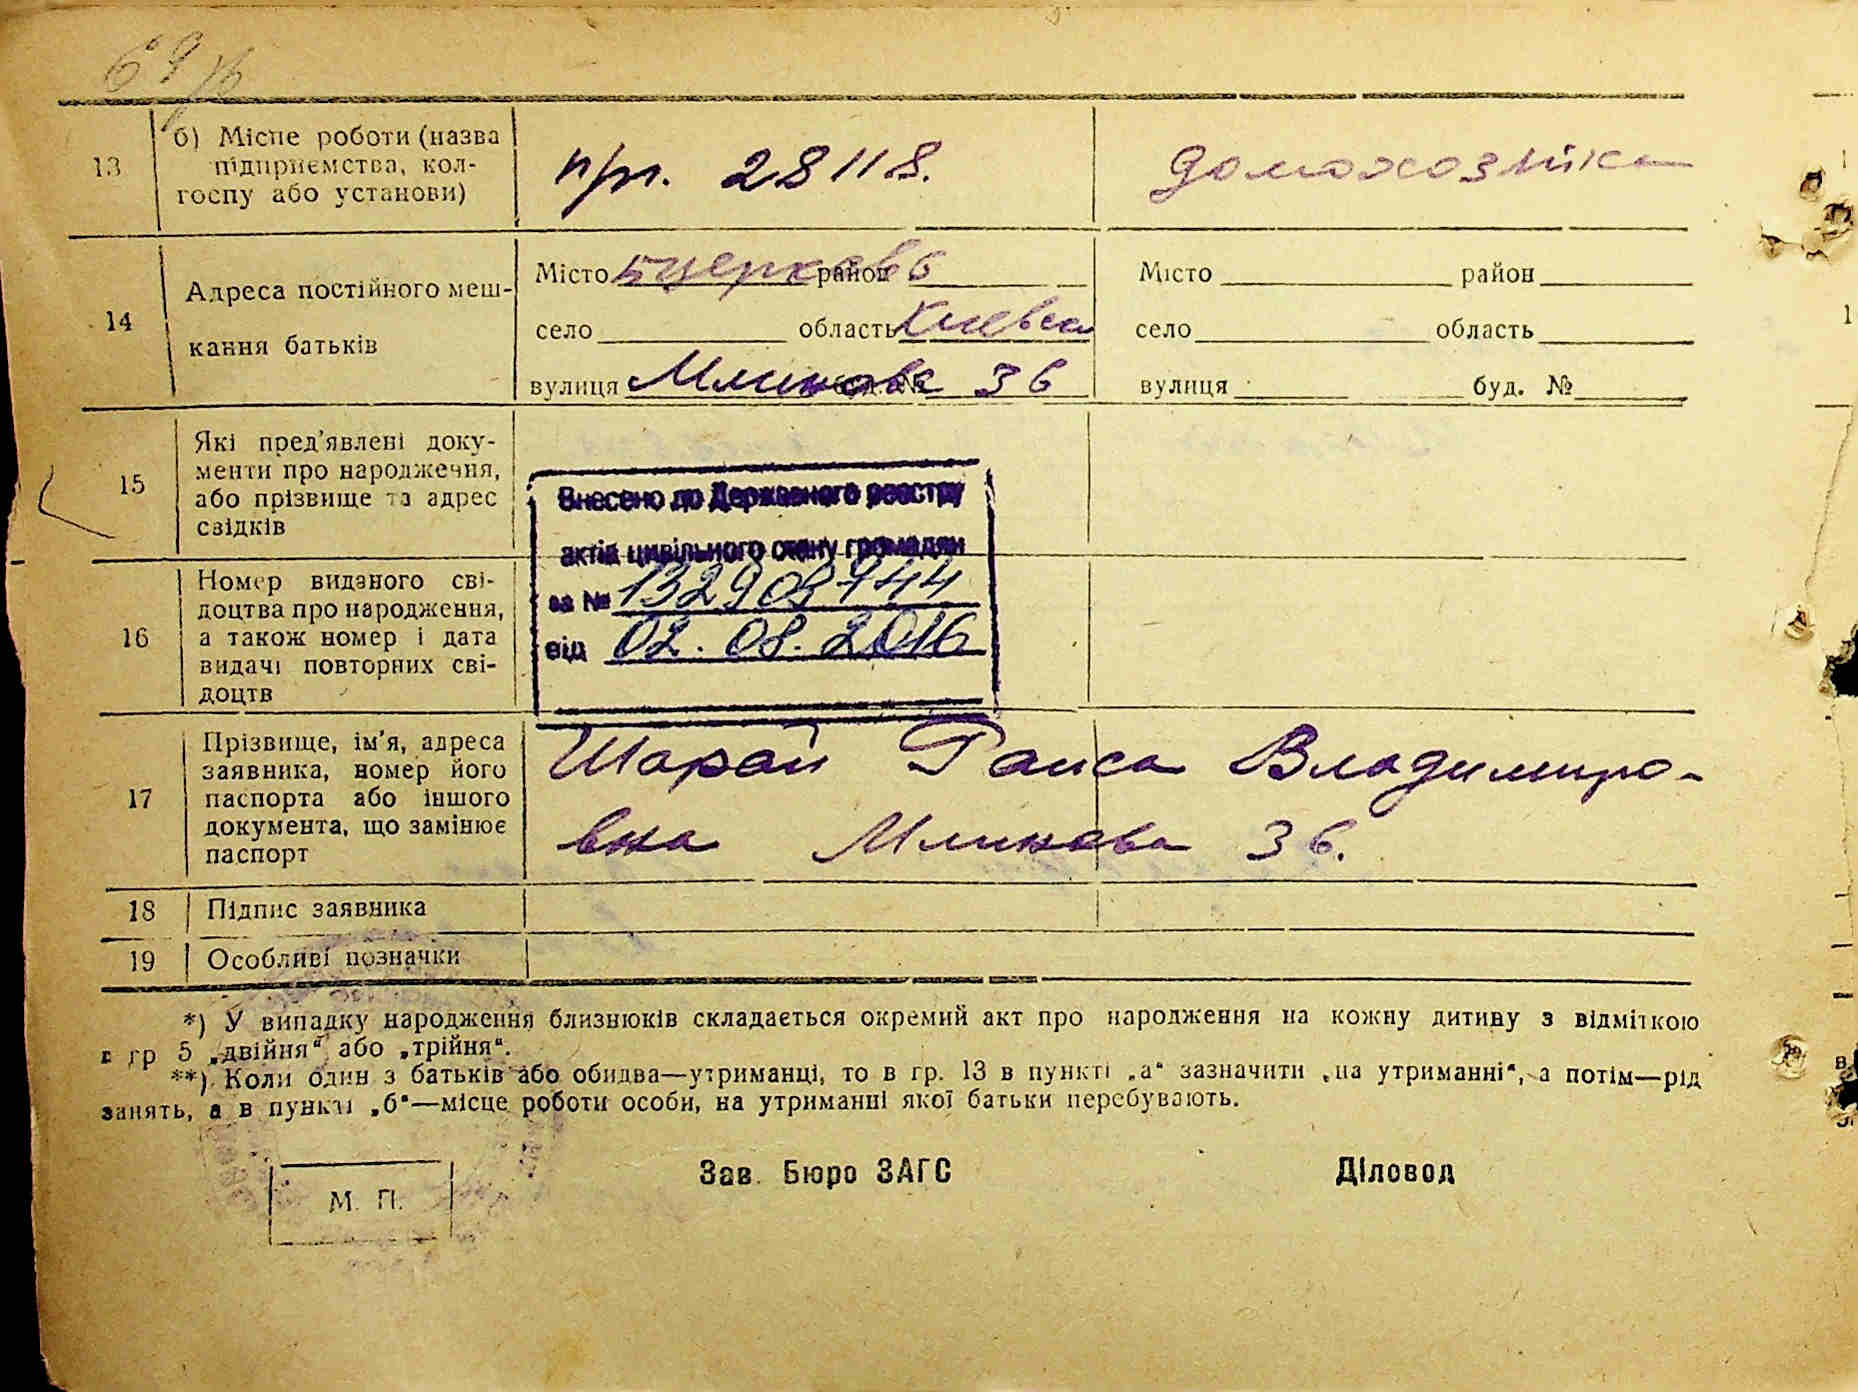 69
13
б) Місце роботи (назва
підприємства, кол-
госпу або установи)
п/п. 28118.
домохозяйка
14
Адреса постійного меш-
кання батьків
Місто Бцерковь район
село область Киевск
вулиця Млинова буд. № 36
Місто район
село область
вулиця буд. №
15
Які пред'явлені доку-
менти про народження,
або прізвище та адрес
свідків
Внесено до Державного реєстру
актів цивільного стану громадян
за № 132908744
від 02.08.2016
16
Номер виданого сві-
доцтва про народження,
а також номер і дата
видачі повторних сві-
доцтв
17
Прізвище, ім'я, адреса
заявника, номер його
паспорта або іншого
документа, що замінює
паспорт
Шарай Раиса Владимиро-
вна Млинова 36.
18
Підпис заявника
19
Особливі позначки
*) У випадку народження близнюків складається окремий акт про народження на кожну дитину з відміткою
в гр 5 „двійня" або „трійня".
**) Коли один з батьків або обидва—утриманці, то в гр. 13 в пункті „а" зазначити „на утриманні", а потім—рід
занять, а в пункті „б"—місце роботи особи, на утриманні якої батьки перебувають.
Зав. Бюро ЗАГС
Діловод
М. П.